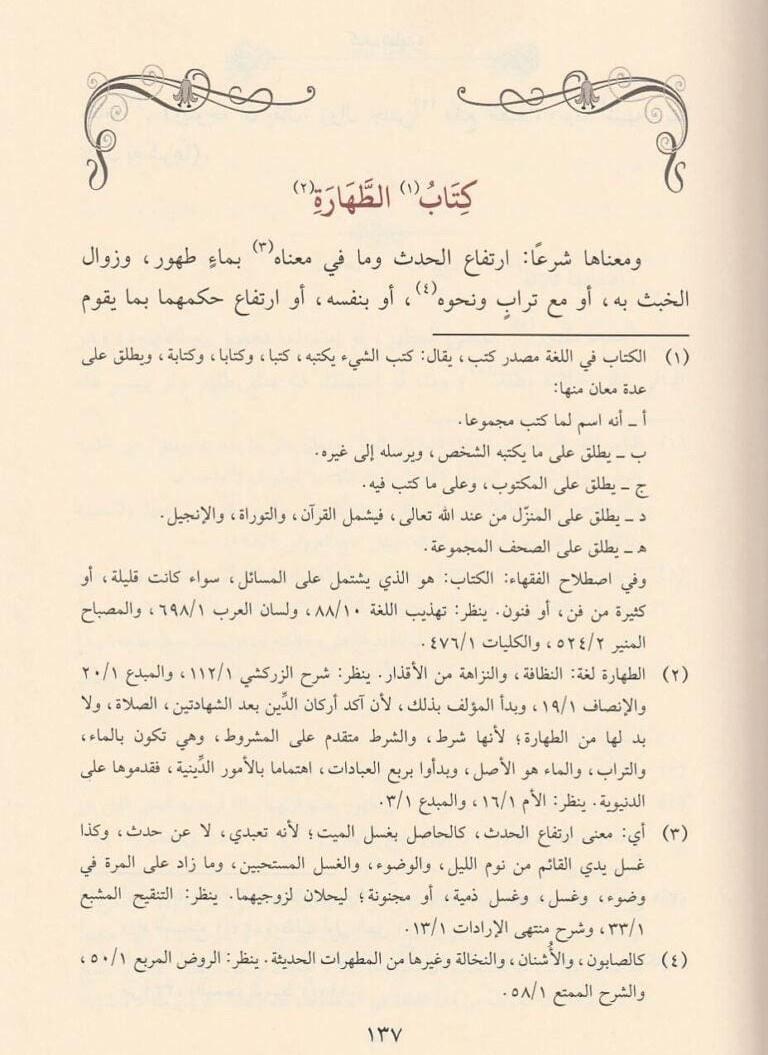 كِتَابُ(١) الطَّهَارَةِ(٢)
ومعناها شرعًا: ارتفاع الحدث وما في معناه(٣) بماءٍ طهور، وزوال
الخبث به، أو مع ترابٍ ونحوه(٤)، أو بنفسه، أو ارتفاع حكمهما بما يقوم
(١) الكتاب في اللغة مصدر كتب، يقال: كتب الشيء يكتبه، كتبا، وكتابا، وكتابة، ويطلق على
عدة معان منها:
أ ـ أنه اسم لما كتب مجموعا.
ب ـ يطلق على ما يكتبه الشخص، ويرسله إلى غيره.
ج ـ يطلق على المكتوب، وعلى ما كتب فيه.
د ـ يطلق على المنزّل من عند الله تعالى، فيشمل القرآن، والتوراة، والإنجيل.
هـ ـ يطلق على الصحف المجموعة.
وفي اصطلاح الفقهاء: الكتاب: هو الذي يشتمل على المسائل، سواء كانت قليلة، أو
كثيرة من فن، أو فنون. ينظر: تهذيب اللغة ٨٨/١٠، ولسان العرب ٦٩٨/١، والمصباح
المنير ٥٢٤/٢، والكليات ٤٧٦/١.
(٢) الطهارة لغة: النظافة، والنزاهة من الأقذار. ينظر: شرح الزركشي ١١٢/١، والمبدع ٢٠/١
والإنصاف ١٩/١، وبدأ المؤلف بذلك، لأن آكد أركان الدِّين بعد الشهادتين، الصلاة، ولا
بد لها من الطهارة؛ لأنها شرط، والشرط متقدم على المشروط، وهي تكون بالماء،
والتراب، والماء هو الأصل، وبدأوا بربع العبادات، اهتماما بالأمور الدِّينية، فقدموها على
الدنيوية. ينظر: الأم ١٦/١، والمبدع ٣/١.
(٣) أي: معنى ارتفاع الحدث، كالحاصل بغسل الميت؛ لأنه تعبدي، لا عن حدث، وكذا
غسل يدي القائم من نوم الليل، والوضوء، والغسل المستحبين، وما زاد على المرة في
وضوء، وغسل، وغسل ذمية، أو مجنونة؛ ليحلان لزوجيهما. ينظر: التنقيح المشبع
٣٣/١، وشرح منتهى الإرادات ١٣/١.
(٤) كالصابون، والأُشنان، والنخالة وغيرها من المطهرات الحديثة. ينظر: الروض المربع ٥٠/١،
والشرح الممتع ٥٨/١.
١٣٧